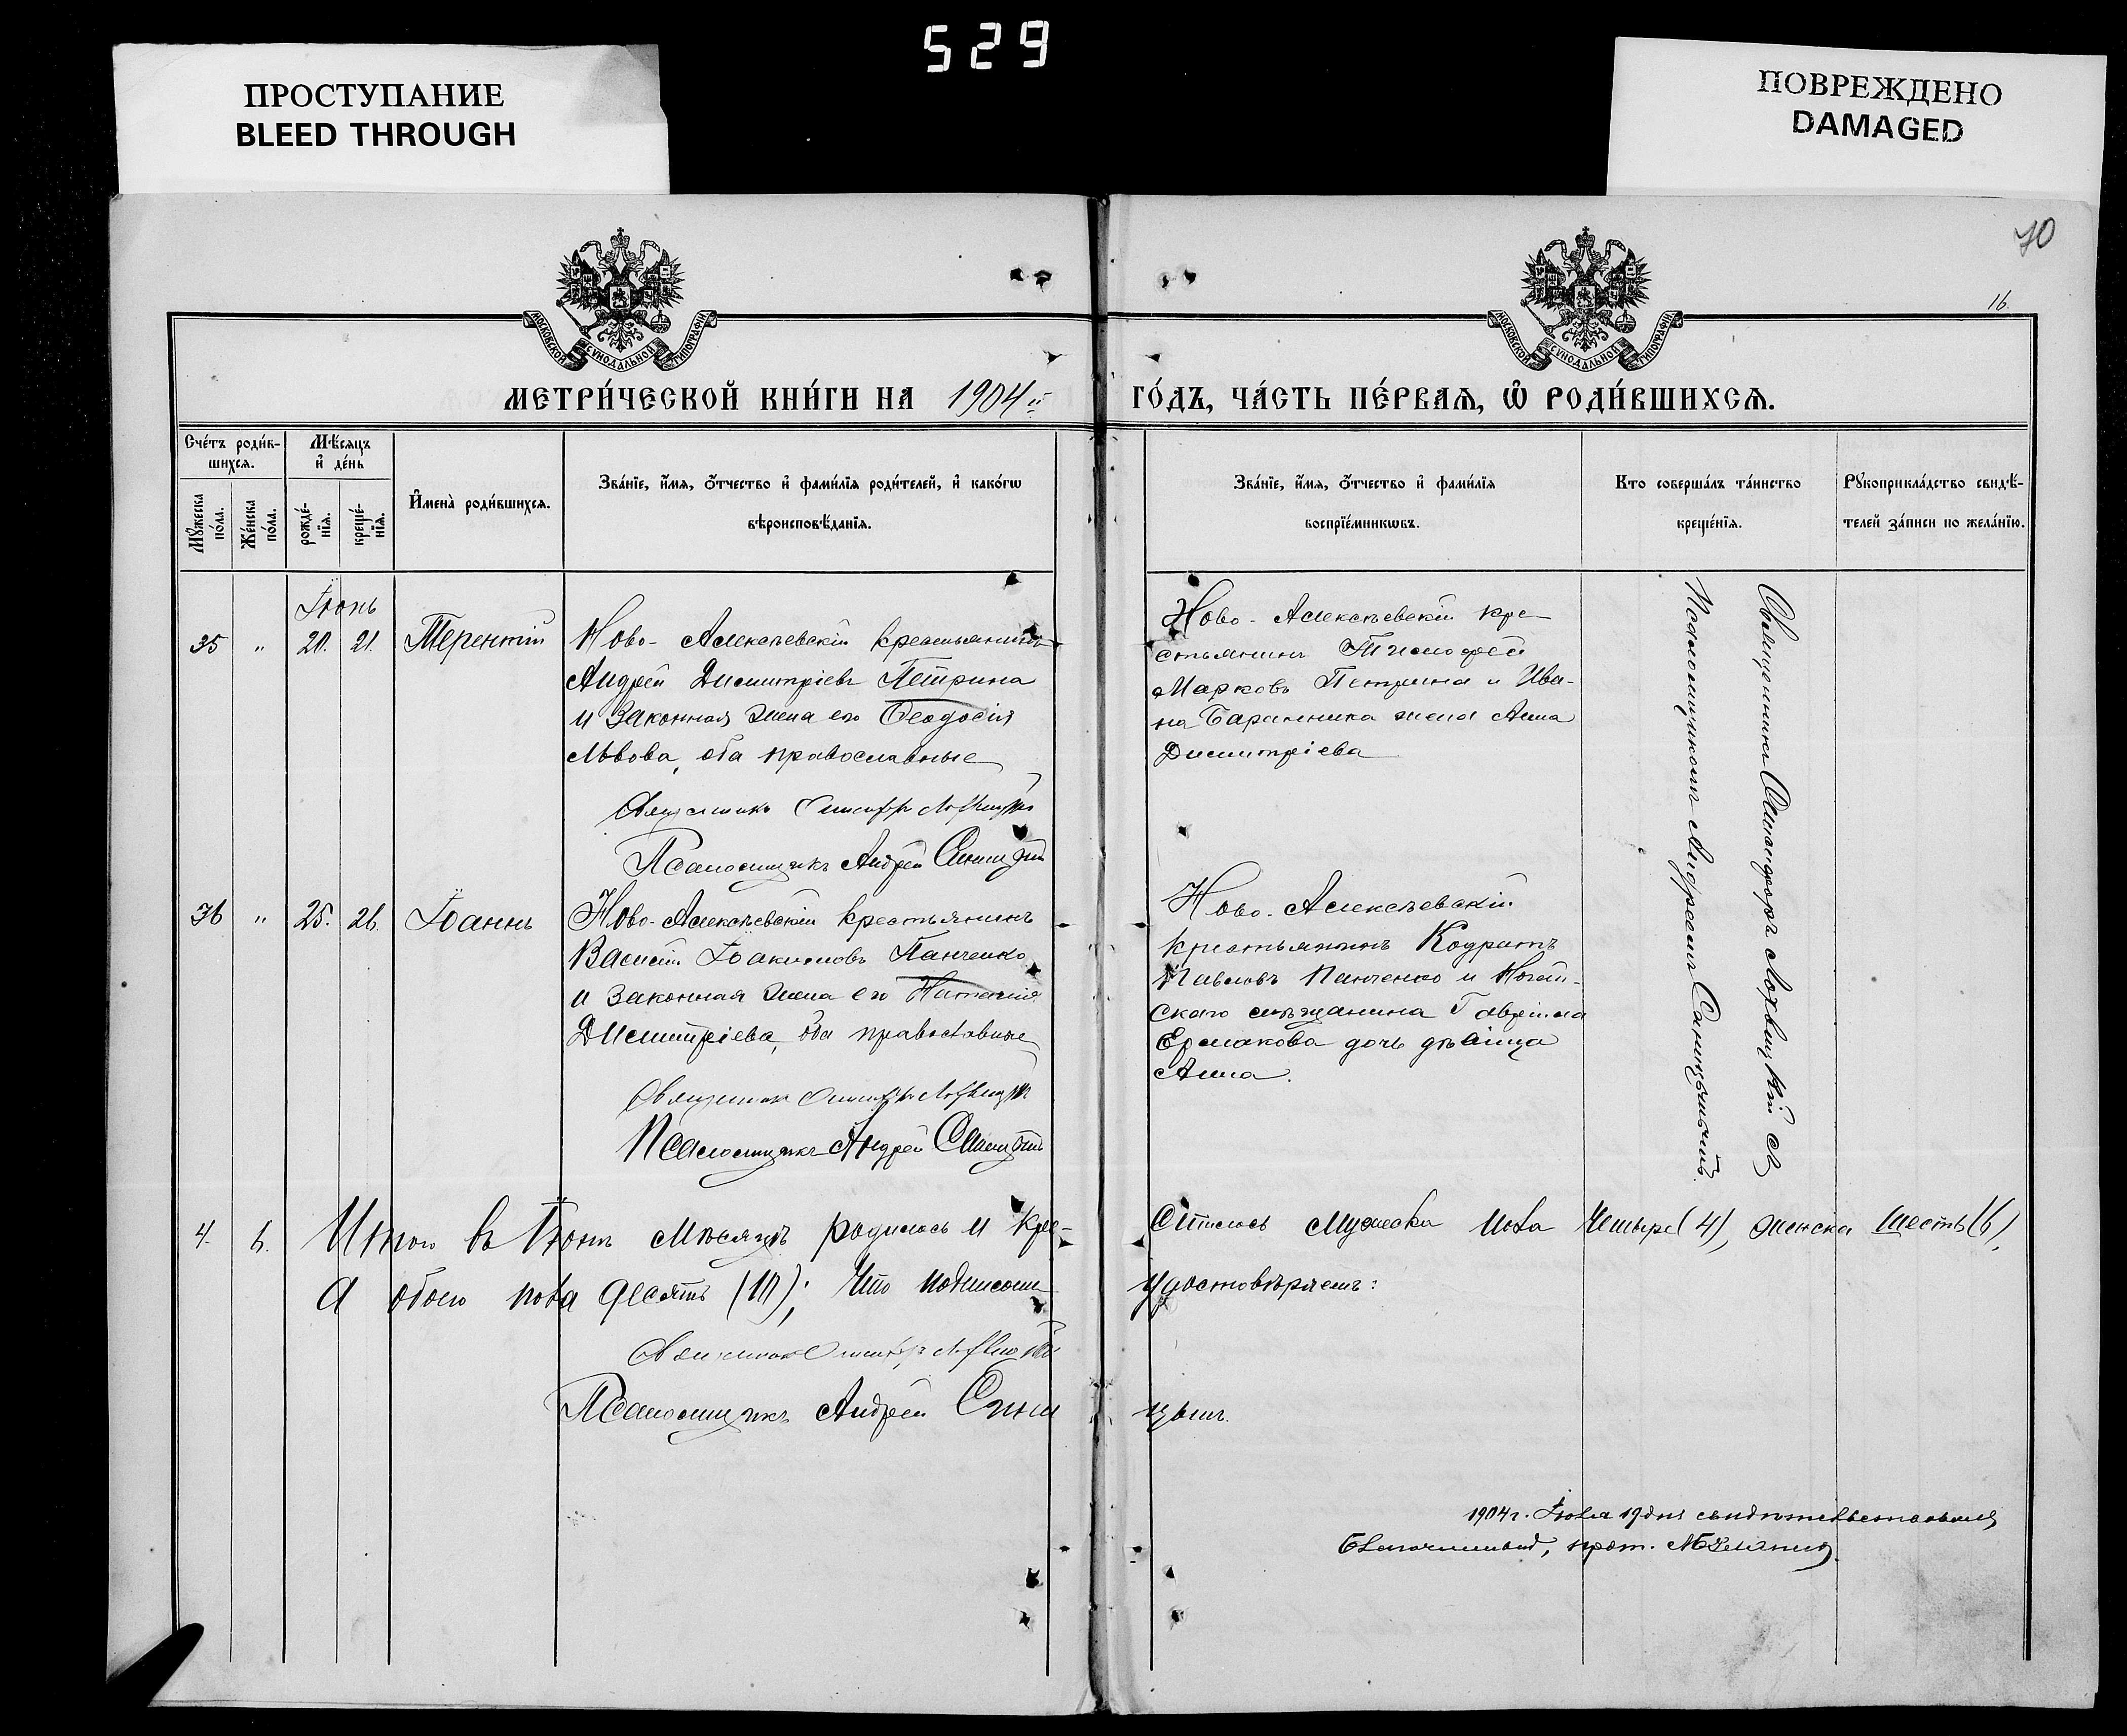 529
ПРОСТУПАНИЕ
BLEED THROUGH
ПОВРЕЖДЕНО
DAMAGED
70
16.
МОСКОВСКОЙ СѴНОДАЛЬНОЙ ТИПОГРАФІИ
МОСКОВСКОЙ СѴНОДАЛЬНОЙ ТИПОГРАФІИ
МЕТРИ́ЧЕСКОЙ КНИ́ГИ НА 1904 й
ГО́ДЪ, ЧА́СТЬ ПЕ́РВАѦ, Ѽ РОДИ́ВШИХСѦ.
Сче́тъ роди́в-
шихсѧ.
Мꙋ́жеска по́ла.
Же́нска по́ла.
Мѣ́сѧцъ
и҆ де́нь
рожде́-
нїѧ.
креще́-
нїѧ.
И҆мена̀ роди́вшихсѧ.
Зва́нїе, и҆́мѧ, ѻ҆́тчество и҆ фами́лїѧ роди́телей, и҆ како́гѡ
вѣроисповѣ́данїѧ.
Зва́нїе, и҆́мѧ, ѻ҆́тчество и҆ фами́лїѧ
воспрїе́мникѡвъ.
Кто соверша́лъ та́инство
креще́нїѧ.
Рꙋкоприкла́дство свидѣ́-
телей за́писи по жела́нїю.
Іюнь
35 " 20. 21. Терентій
Ново-Алексѣевскій крестьянинъ
Андрей Димитріевъ Петрина
и законная жена его Ѳеодосія
Львова, оба православные
Священникъ
Псаломщикъ Андрей
Ново-Алексѣевскій кре-
стьянинъ Тимофей
Марковъ Петрина и Ива-
на Баранника жена Анна
Димитріева
Священникъ Лохвицкій съ
Псаломщикомъ Андреемъ
36 " 25. 26. Іоаннъ
Ново-Алексѣевскій крестьянинъ
Василій Іоакимовъ Панченко
и законная жена его Наталія
Димитріева, оба православные
Священникъ
Псаломщикъ Андрей
Ново-Алексѣевскій
крестьянинъ Кодратъ
Павловъ Панченко и Ногай-
скаго мѣщанина Гавріила
Ермакова дочь дѣвица
Анна.
4. 6. Итого въ Іюнѣ мѣсяцѣ родилось и кре-
стилось мужеска пола четыре (4), женска шесть (6),
а обоего пола десять (10); что подписом
удостовѣряемъ:
Священникъ
Псаломщикъ Андрей
1904 г. Іюля 19 дня свидѣтельствовалъ
Благочинный, прот.